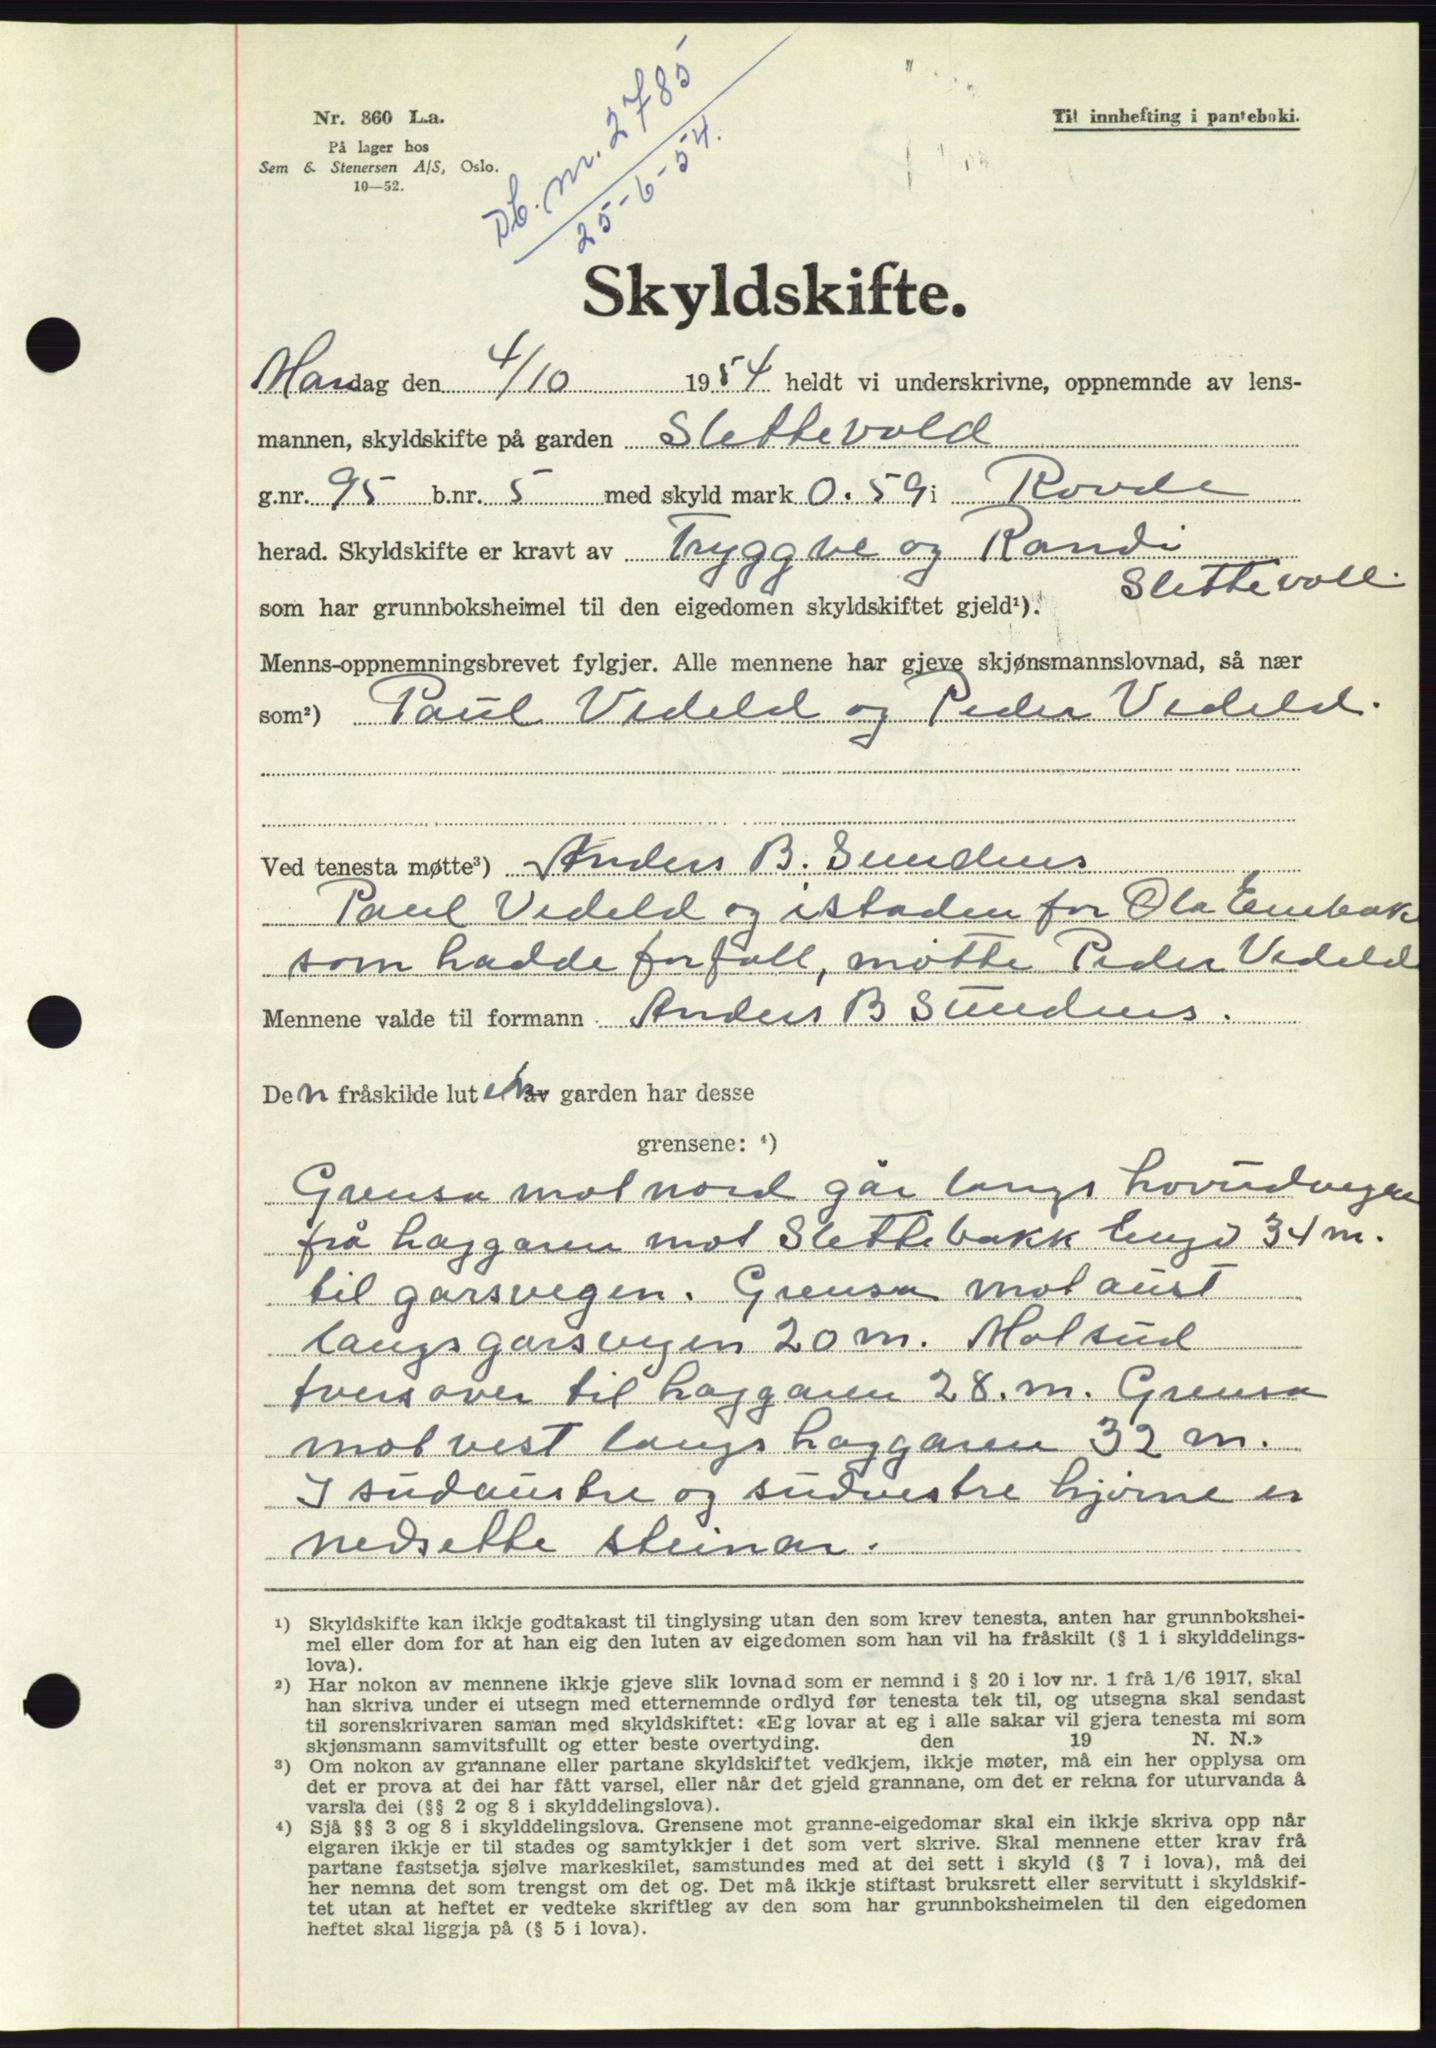 Nr. 860 L.a.
På lager hos
Sem & Stenersen A/S, Oslo.
10—52.
Db. nr. 2785
25-6-54.
Til innhefting i panteboki.
Skyldskifte.
Mandag den 4/10 1954 heldt vi underskrivne, oppnemnde av lens-
mannen, skyldskifte på garden Slettevold
g.nr. 95 b.nr. 5 med skyld mark 0.59 i Rovde
herad. Skyldskifte er kravt av Tryggve og Randi
Slettevoll.
som har grunnboksheimel til den eigedomen skyldskiftet gjeld¹).
Menns-oppnemningsbrevet fylgjer. Alle mennene har gjeve skjønsmannslovnad, så nær
som²) Paul Vedeld og Peder Vedeld.
Ved tenesta møtte³) Anders B. Sundnes
Paul Vedeld og istaden for Ola Eenbakk
som hadde forfall, møtte Peder Vedeld
Mennene valde til formann Anders B Sundnes.
Den fråskilde luten av garden har desse
grensene: ⁴)
Grensa mot nord går langs hovudvegen
frå haggaren mot Slettebakk Engd 34 m.
til garsvegen. Grensa mot aust
langs garsvegen 20 m. Mot sud
tvers over til haggaren 28. m. Grensa
mot vest langs haggaren 32 m.
I sudaustre og sudvestre hjørne er
nedsette steinar.
¹) Skyldskifte kan ikkje godtakast til tinglysing utan den som krev tenesta, anten har grunnbokshei-
mel eller dom for at han eig den luten av eigedomen som han vil ha fråskilt (§ 1 i skylddelings-
lova).
²) Har nokon av mennene ikkje gjeve slik lovnad som er nemnd i § 20 i lov nr. 1 frå 1/6 1917, skal
han skriva under ei utsegn med etternemnde ordlyd før tenesta tek til, og utsegna skal sendast
til sorenskrivaren saman med skyldskiftet: «Eg lovar at eg i alle sakar vil gjera tenesta mi som
skjønsmann samvitsfullt og etter beste overtyding. den 19 N. N.»
³) Om nokon av grannane eller partane skyldskiftet vedkjem, ikkje møter, må ein her opplysa om
det er prova at dei har fått varsel, eller når det gjeld grannane, om det er rekna for uturvanda å
varsla dei (§§ 2 og 8 i skylddelingslova).
⁴) Sjå §§ 3 og 8 i skylddelingslova. Grensene mot granne-eigedomar skal ein ikkje skriva opp når
eigaren ikkje er til stades og samtykkjer i det som vert skrive. Skal mennene etter krav frå
partane fastsetja sjølve markeskilet, samstundes med at dei sett i skyld (§ 7 i lova), må dei
her nemna det som trengst om det og. Det må ikkje stiftast bruksrett eller servitutt i skyldskif-
tet utan at heftet er vedteke skriftleg av den som har grunnboksheimelen til den eigedomen
heftet skal liggja på (§ 5 i lova).